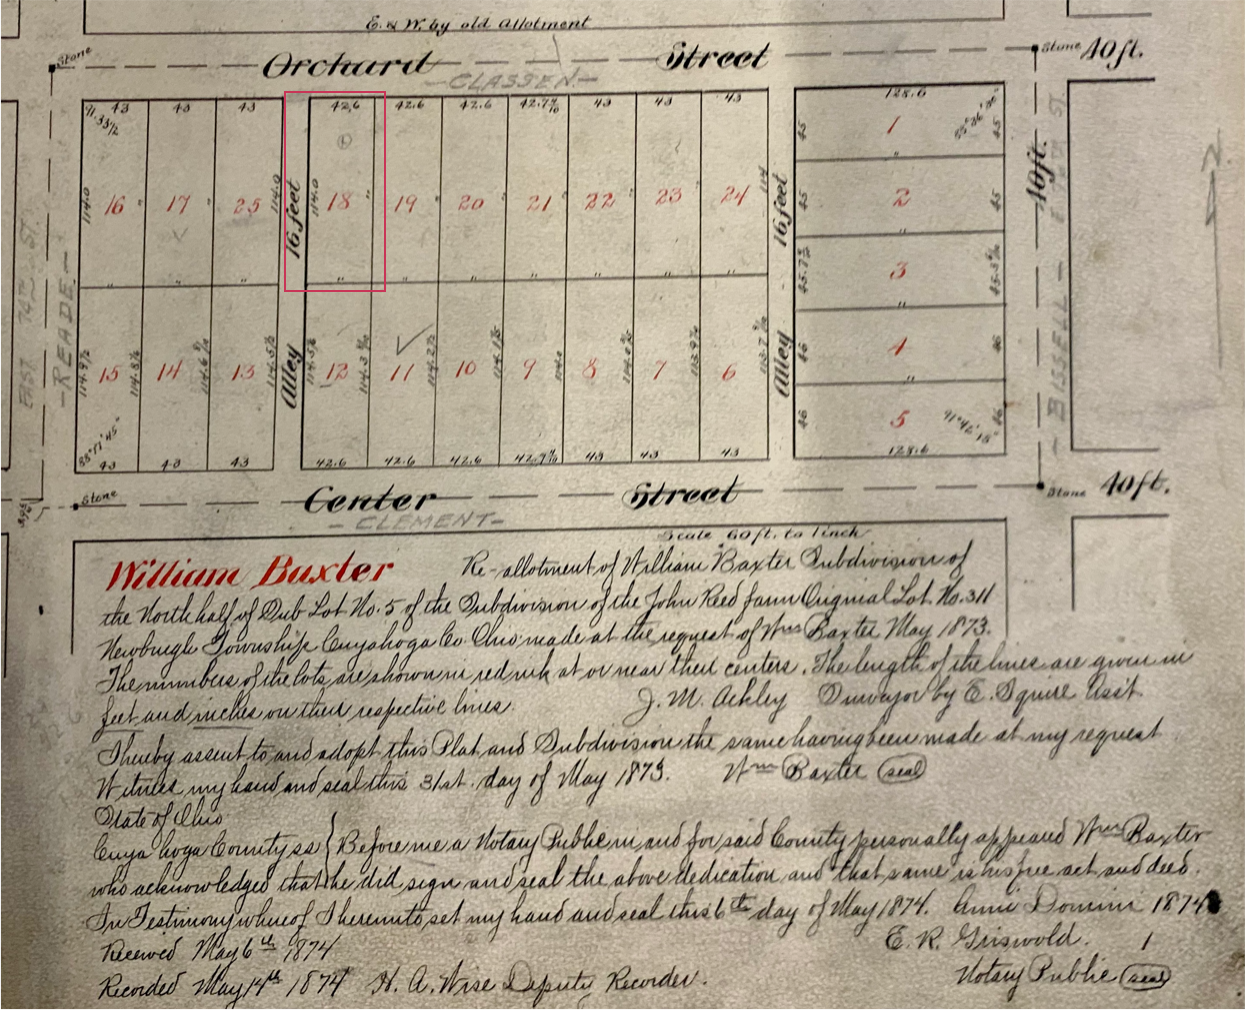 E. & W. by old Allotment
Stone Orchard Street Stone 40ft.
-CLASSEN-
43 43 43 42,6 42.6 42.6 43 43 43 128.6
1
45 45
114.0 16 17 25 114.0 16 feet 114.0 18 19 20 21 22 23 24 114 16 feet 45 2 45
40ft.
3
EAST 74TH ST. -READE-
15 14 13 Alley 12 11 10 9 8 7 6 Alley 46 4 46
- BISSELL -
46 5 46
43 43 43 42.6 42.6 42.6 43 43 43 128.6
Stone Center Street Stone 40ft.
-CLEMENT-
Scale 60 ft. to 1 inch
William Baxter Re-allotment of William Baxter Subdivision of
the North half of Sub Lot No. 5 of the Subdivision of the John Reed farm Original Lot No. 311
Newburgh Township Cuyahoga Co. Ohio made at the request of Wm Baxter May 1873.
The numbers of the lots are shown in red ink at or near their centers. The length of the lines are given in
feet and inches on their respective lines. J. M. Ackley Surveyor by E. Squire Asst
I hereby assent to and adopt this Plat and Subdivision the same having been made at my request
Witness my hand and seal this 31st. day of May 1873. Wm Baxter (seal)
State of Ohio
Cuyahoga County ss } Before me a Notary Public in and for said County personally appeared Wm Baxter
who acknowledged that he did sign and seal the above dedication and that same is his free act and deed.
In Testimony whereof I hereunto set my hand and seal this 6th day of May 1874. Anni Domini 1874
Received May 6th 1874 E. R. Griswold. 1
Recorded May 14th 1874 H. A. Wise Deputy Recorder. Notary Public (seal)